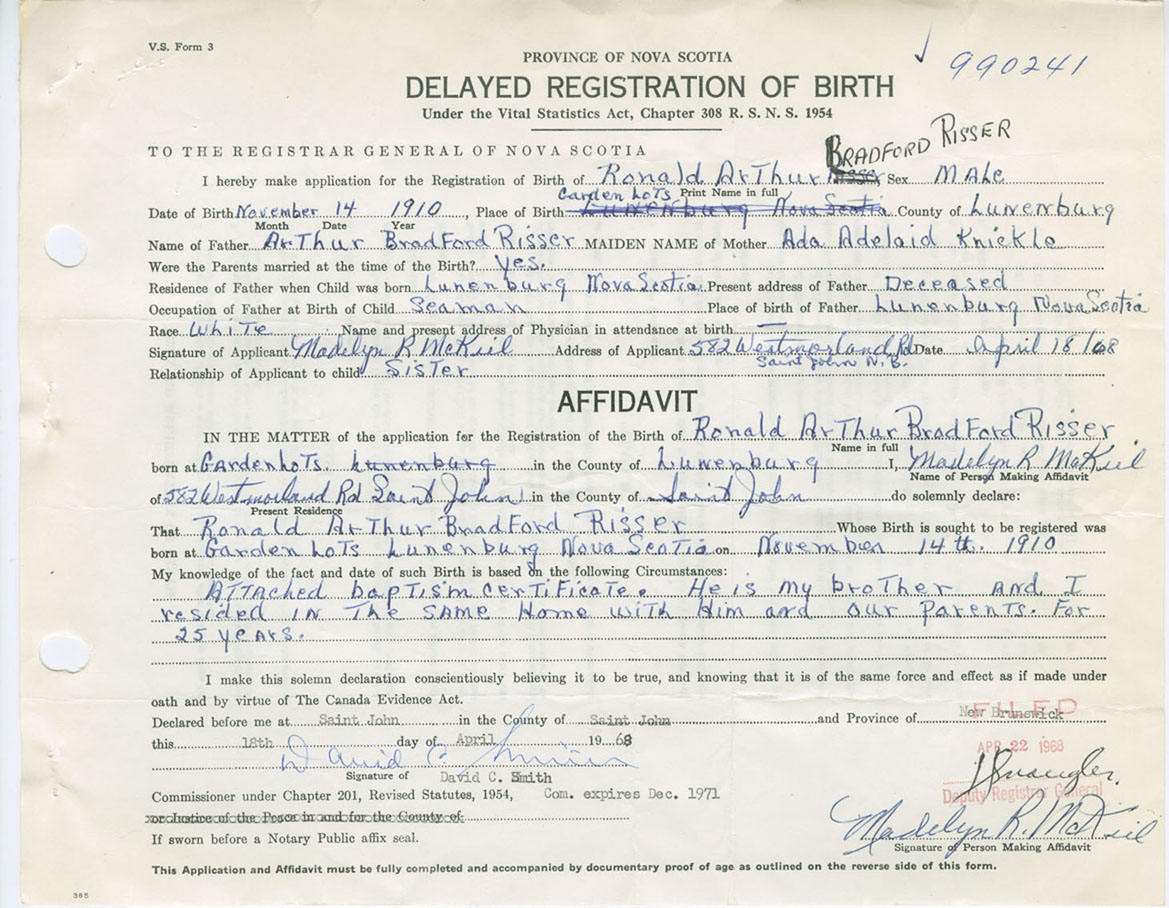 V.S. Form 3
990241
PROVINCE OF NOVA SCOTIA
DELAYED REGISTRATION OF BIRTH
Under the Vital Statistics Act, Chapter 308 R. S. N. S. 1954
TO THE REGISTRAR GENERAL OF NOVA SCOTIA
BRADFORD RISSER
I hereby make application for the Registration of Birth of Ronald ArThur Risser Sex MALe
Print Name in full
Garden LoTs
Date of Birth November 14 1910, Place of Birth Lunenburg Nova Scotia County of Lunenburg
Month Date Year
Name of Father ArThur BradFord Risser MAIDEN NAME of Mother Ada Adelaid Knickle
Were the Parents married at the time of the Birth? Yes.
Residence of Father when Child was born Lunenburg Nova Scotia Present address of Father Deceased
Occupation of Father at Birth of Child Seaman Place of birth of Father Lunenburg Nova Scotia
Race WhiTe Name and present address of Physician in attendance at birth —
Signature of Applicant Madelyn R McKiel Address of Applicant 582 Westmorland Rd Date April 18/68
Saint John N.B.
Relationship of Applicant to child SisTer
AFFIDAVIT
IN THE MATTER of the application for the Registration of the Birth of Ronald ArThur BradFord Risser
Name in full
born at GardenLoTs. Lunenburg in the County of Lunenburg I, Madelyn R McKiel
Name of Person Making Affidavit
of 582 Westmorland Rd Saint John in the County of Saint John do solemnly declare:
Present Residence
That Ronald ArThur BradFord Risser Whose Birth is sought to be registered was
born at Garden LoTs Lunenburg Nova Scotia on November 14th. 1910
My knowledge of the fact and date of such Birth is based on the following Circumstances:
ATTAched bapTism cerTiFicaTe. He is my broTher AND I
resided IN The SAME Home wiTh Him and our parents. For
25 years.
I make this solemn declaration conscientiously believing it to be true, and knowing that it is of the same force and effect as if made under
oath and by virtue of The Canada Evidence Act.
Declared before me at Saint John in the County of Saint John and Province of New Brunswick
FILED
this 18th day of April 1968
APR 22 1968
David C. Smith
Signature of David C. Smith
Deputy Registrar General
Commissioner under Chapter 201, Revised Statutes, 1954, Com. expires Dec. 1971
or Justice of the Peace in and for the County of
Madelyn R. McKiel
If sworn before a Notary Public affix seal.
Signature of Person Making Affidavit
This Application and Affidavit must be fully completed and accompanied by documentary proof of age as outlined on the reverse side of this form.
385